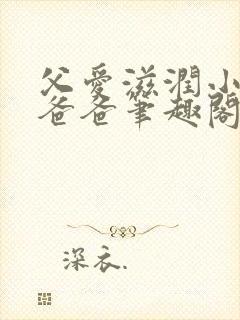 父愛滋潤小
爸爸筆趣閣
深衣.